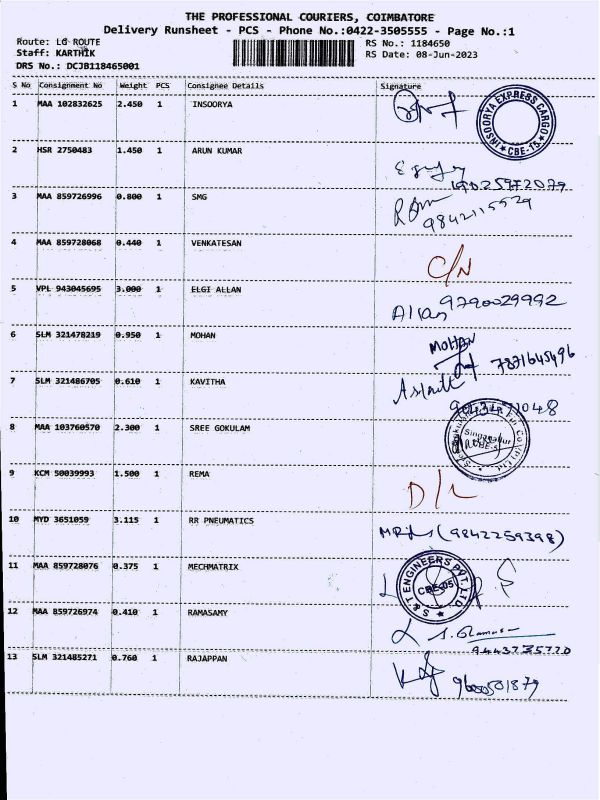 THE PROFESSIONAL COURIERS, COIMBATORE
Delivery Runsheet - PCS - Phone No.:0422-3505555 - Page No.:1
Route: LG ROUTE
RS No.: 1184650
Staff: KARTHIK
RS Date: 08-Jun-2023
DRS No.: DCJB118465001
S No Consignment No Weight PCS Consignee Details Signature
1 MAA 102832625 2.450 1 INSOORYA
INSOORYA EXPRESS CARGO
★ CBE-15 ★
2 HSR 2750483 1.450 1 ARUN KUMAR
3 MAA 859726996 0.800 1 SMG
4 MAA 859728068 0.440 1 VENKATESAN
C/N
5 VPL 943045695 3.000 1 ELGI ALLAN
Allan 9790029992
6 SLM 321478219 0.950 1 MOHAN
MOHAN
7871645496
7 SLM 321486705 0.610 1 KAVITHA
8 MAA 103760570 2.300 1 SREE GOKULAM
Singanallur
9 KCM 50039993 1.500 1 REMA
D/L
10 MYD 3651059 3.115 1 RR PNEUMATICS
(9842259398)
11 MAA 859728076 0.375 1 MECHMATRIX
S & T ENGINEERS PVT. LTD.
CBE-05
12 MAA 859726974 0.410 1 RAMASAMY
9443735770
13 SLM 321485271 0.760 1 RAJAPPAN
9600501879